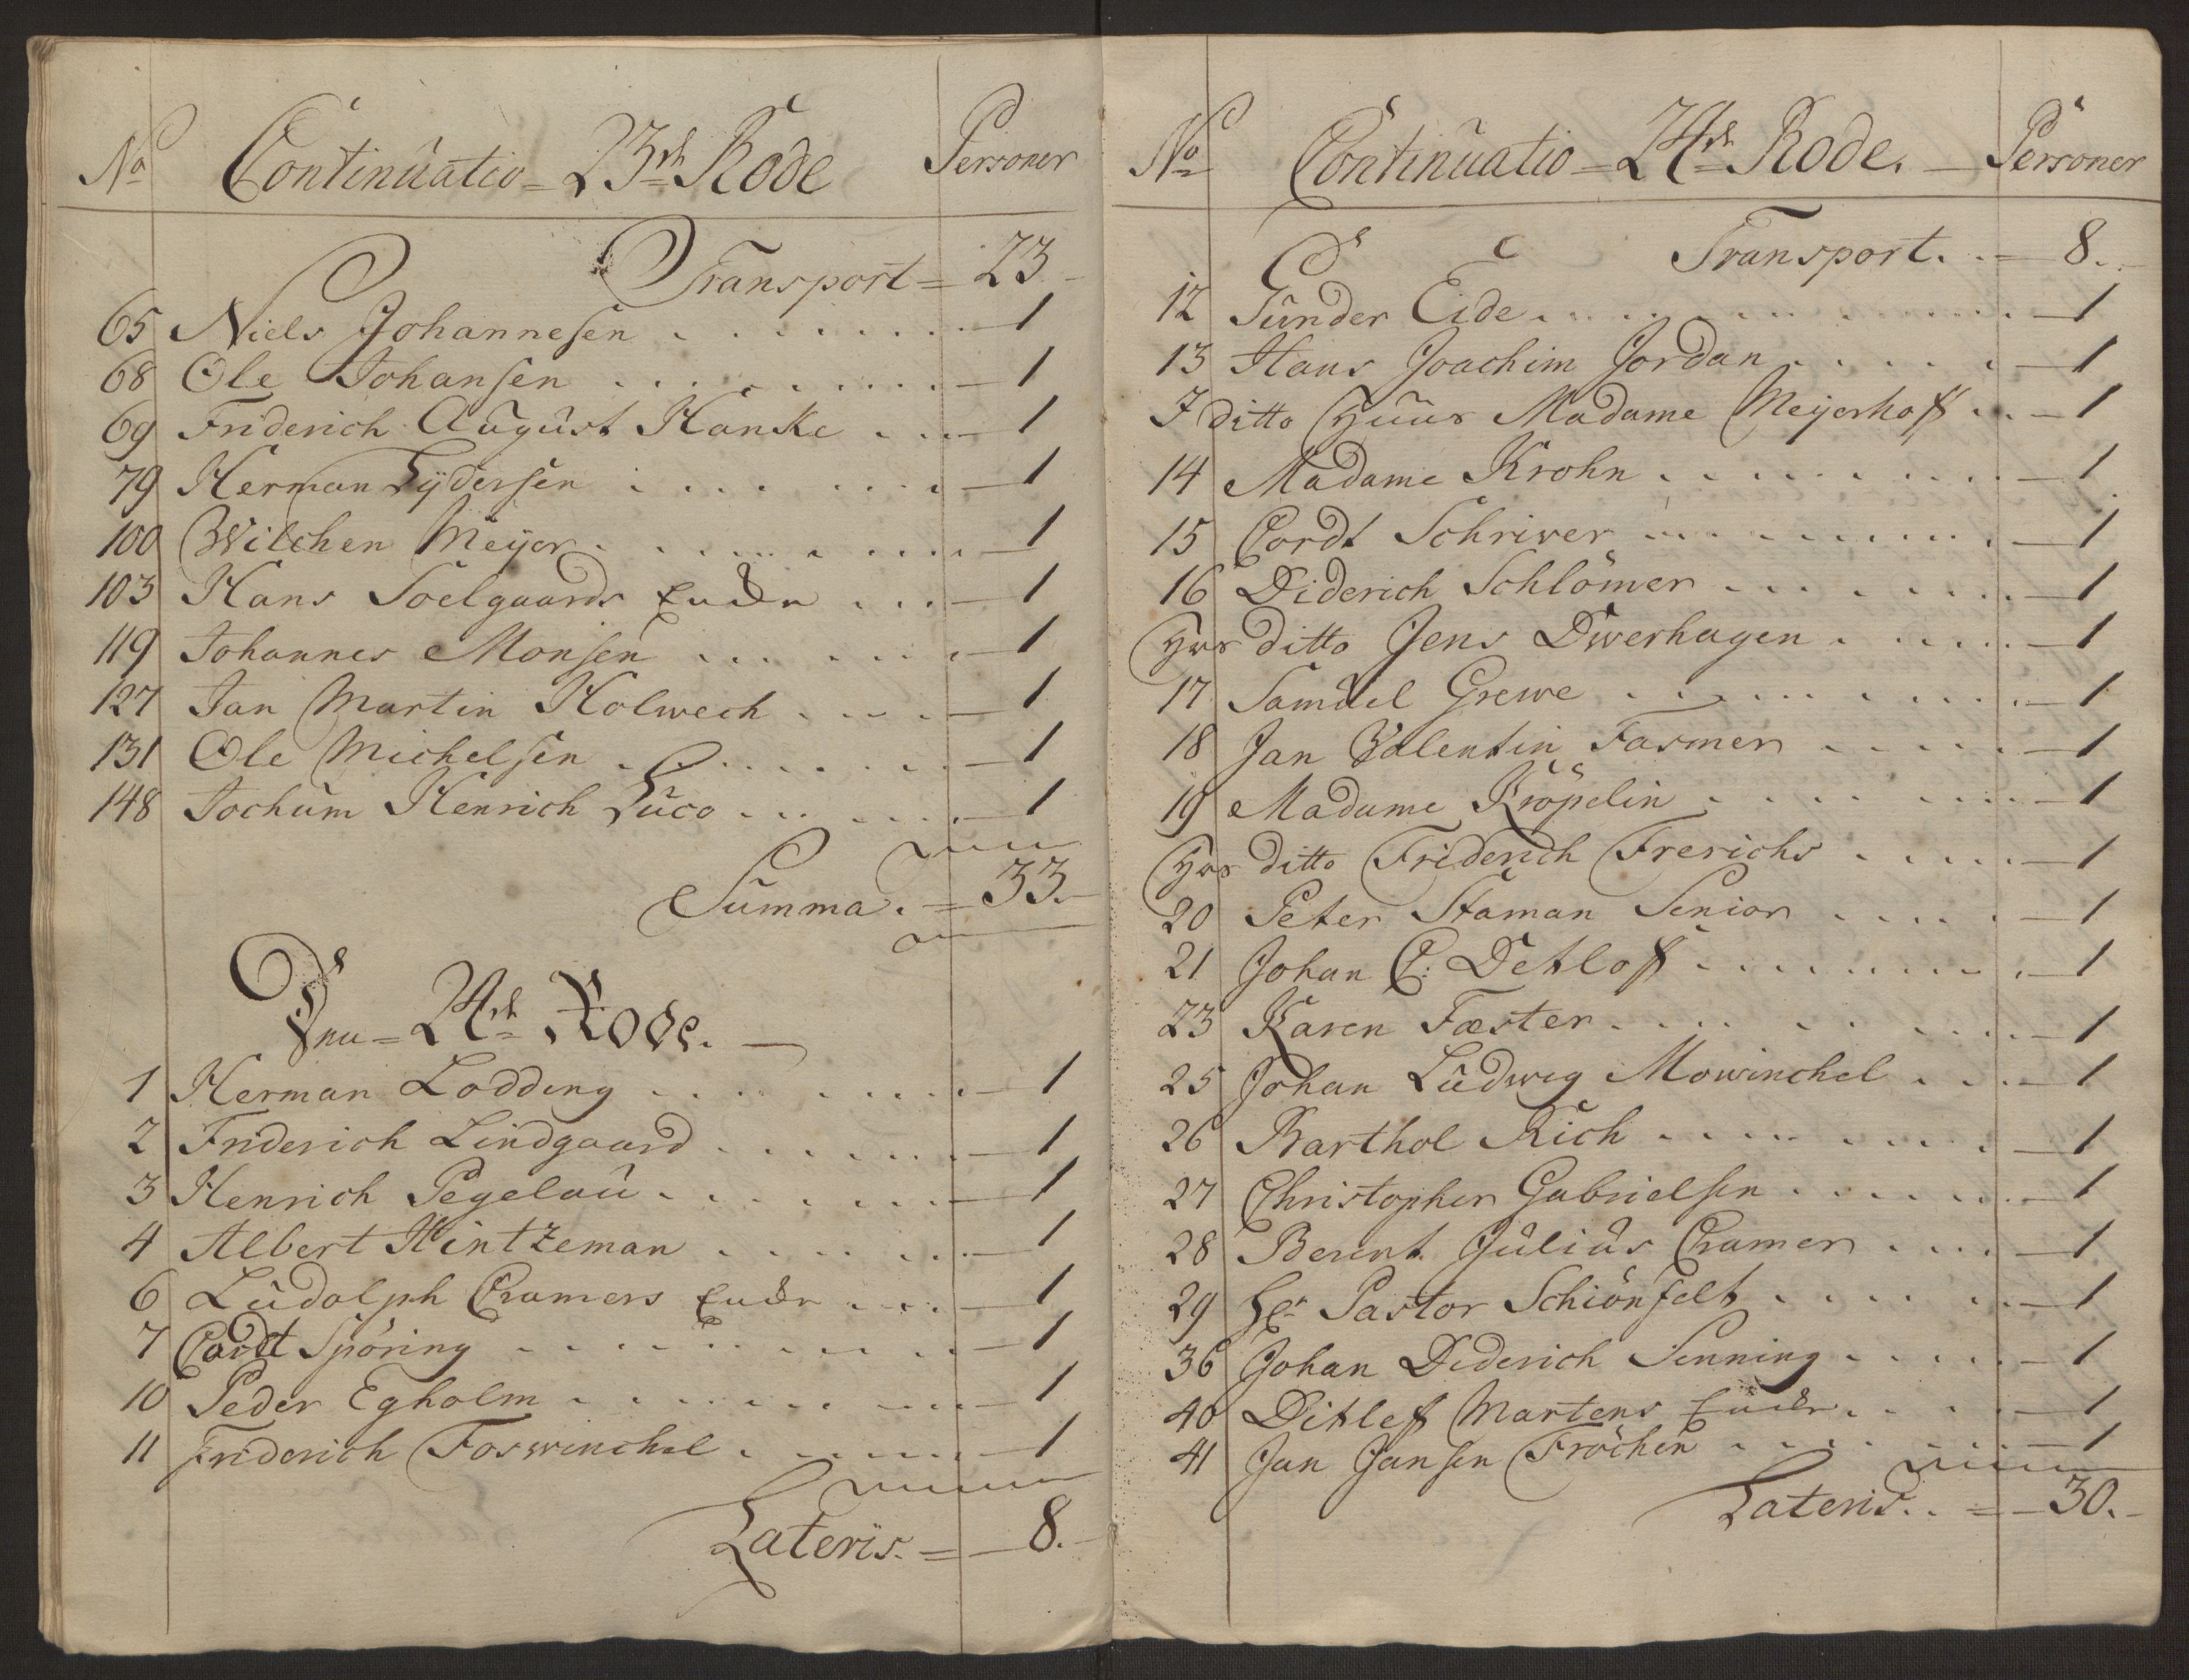 No Continuatio = 23de Rode Personer
Transport = 23 -
65 Niels Johannesen . . . . . . . . — 1
68 Ole Johansen . . . . . . . . — 1
69 Friderich August Hanke . . . — 1
79 Herman Lÿdersen . . . . . . . — 1
100 Wilchen Meÿer . . . . . . . . — 1
103 Hans Soelgaards Encke . . . — 1
119 Johannes Monsen . . . . . . . — 1
127 Jan Martin Holwech . . . . — 1
131 Ole Michelsen . . . . . . . . — 1
148 Jochum Henrich Luco . . . . . . — 1
Summa . = 33. -
Den = 24de Rode. —
1 Herman Lodding . . . . . . . . — 1
2 Friderich Lindgaard . . . . . . . — 1
3 Henrich Pegelau . . . . . . . — 1
4 Albert Hintzeman . . . . . . . — 1
6 Ludolph Cramers Encke . . . . — 1
7 Cordt Spöring . . . . . . . . — 1
10 Peder Egholm . . . . . . . . — 1
11 Friderich Foswinchel . . . . . . — 1
Lateris. = — 8. -
No Continuatio = 24de Rode. — Personer
Transport. . = 8. -
12 Gunder Eide . . . . . . . . . . — 1
13 Hans Joachim Jordan . . . . . — 1
I ditto Huus Madame Meÿerhoff . . — 1
14 Madame Krohn . . . . . . . . — 1
15 Cordt Schriver . . . . . . . . . — 1
16 Diderich Schlömer . . . . . . . — 1
Hus ditto Jens Dwerhagen . . . . . — 1
17 Samuel Grewe . . . . . . . . . — 1
18 Jan Valentin Fasmer . . . . . — 1
19 Madame Kröpelin . . . . . . . . — 1
Hus ditto Friderich Frerichs . . . . . — 1
20 Peter Staman Senior . . . . . — 1
21 Johan C: Detloff . . . . . . . . — 1
23 Karen Fæster . . . . . . . . . — 1
25 Johan Ludwig Mowinchel . . . — 1
26 Barthol Rich . . . . . . . . — 1
27 Christopher Gabrielsen . . . . . . — 1
28 Berent Julius Cramer . . . . — 1
29 Hr Pastor Schiönfelt . . . . . . — 1
36 Johan Diderich Senning . . . . . — 1
40 Ditlef Martens Encke . . . . — 1
41 Jan Jansen Fröchen . . . . . . . — 1
Lateris. . = — 30. -